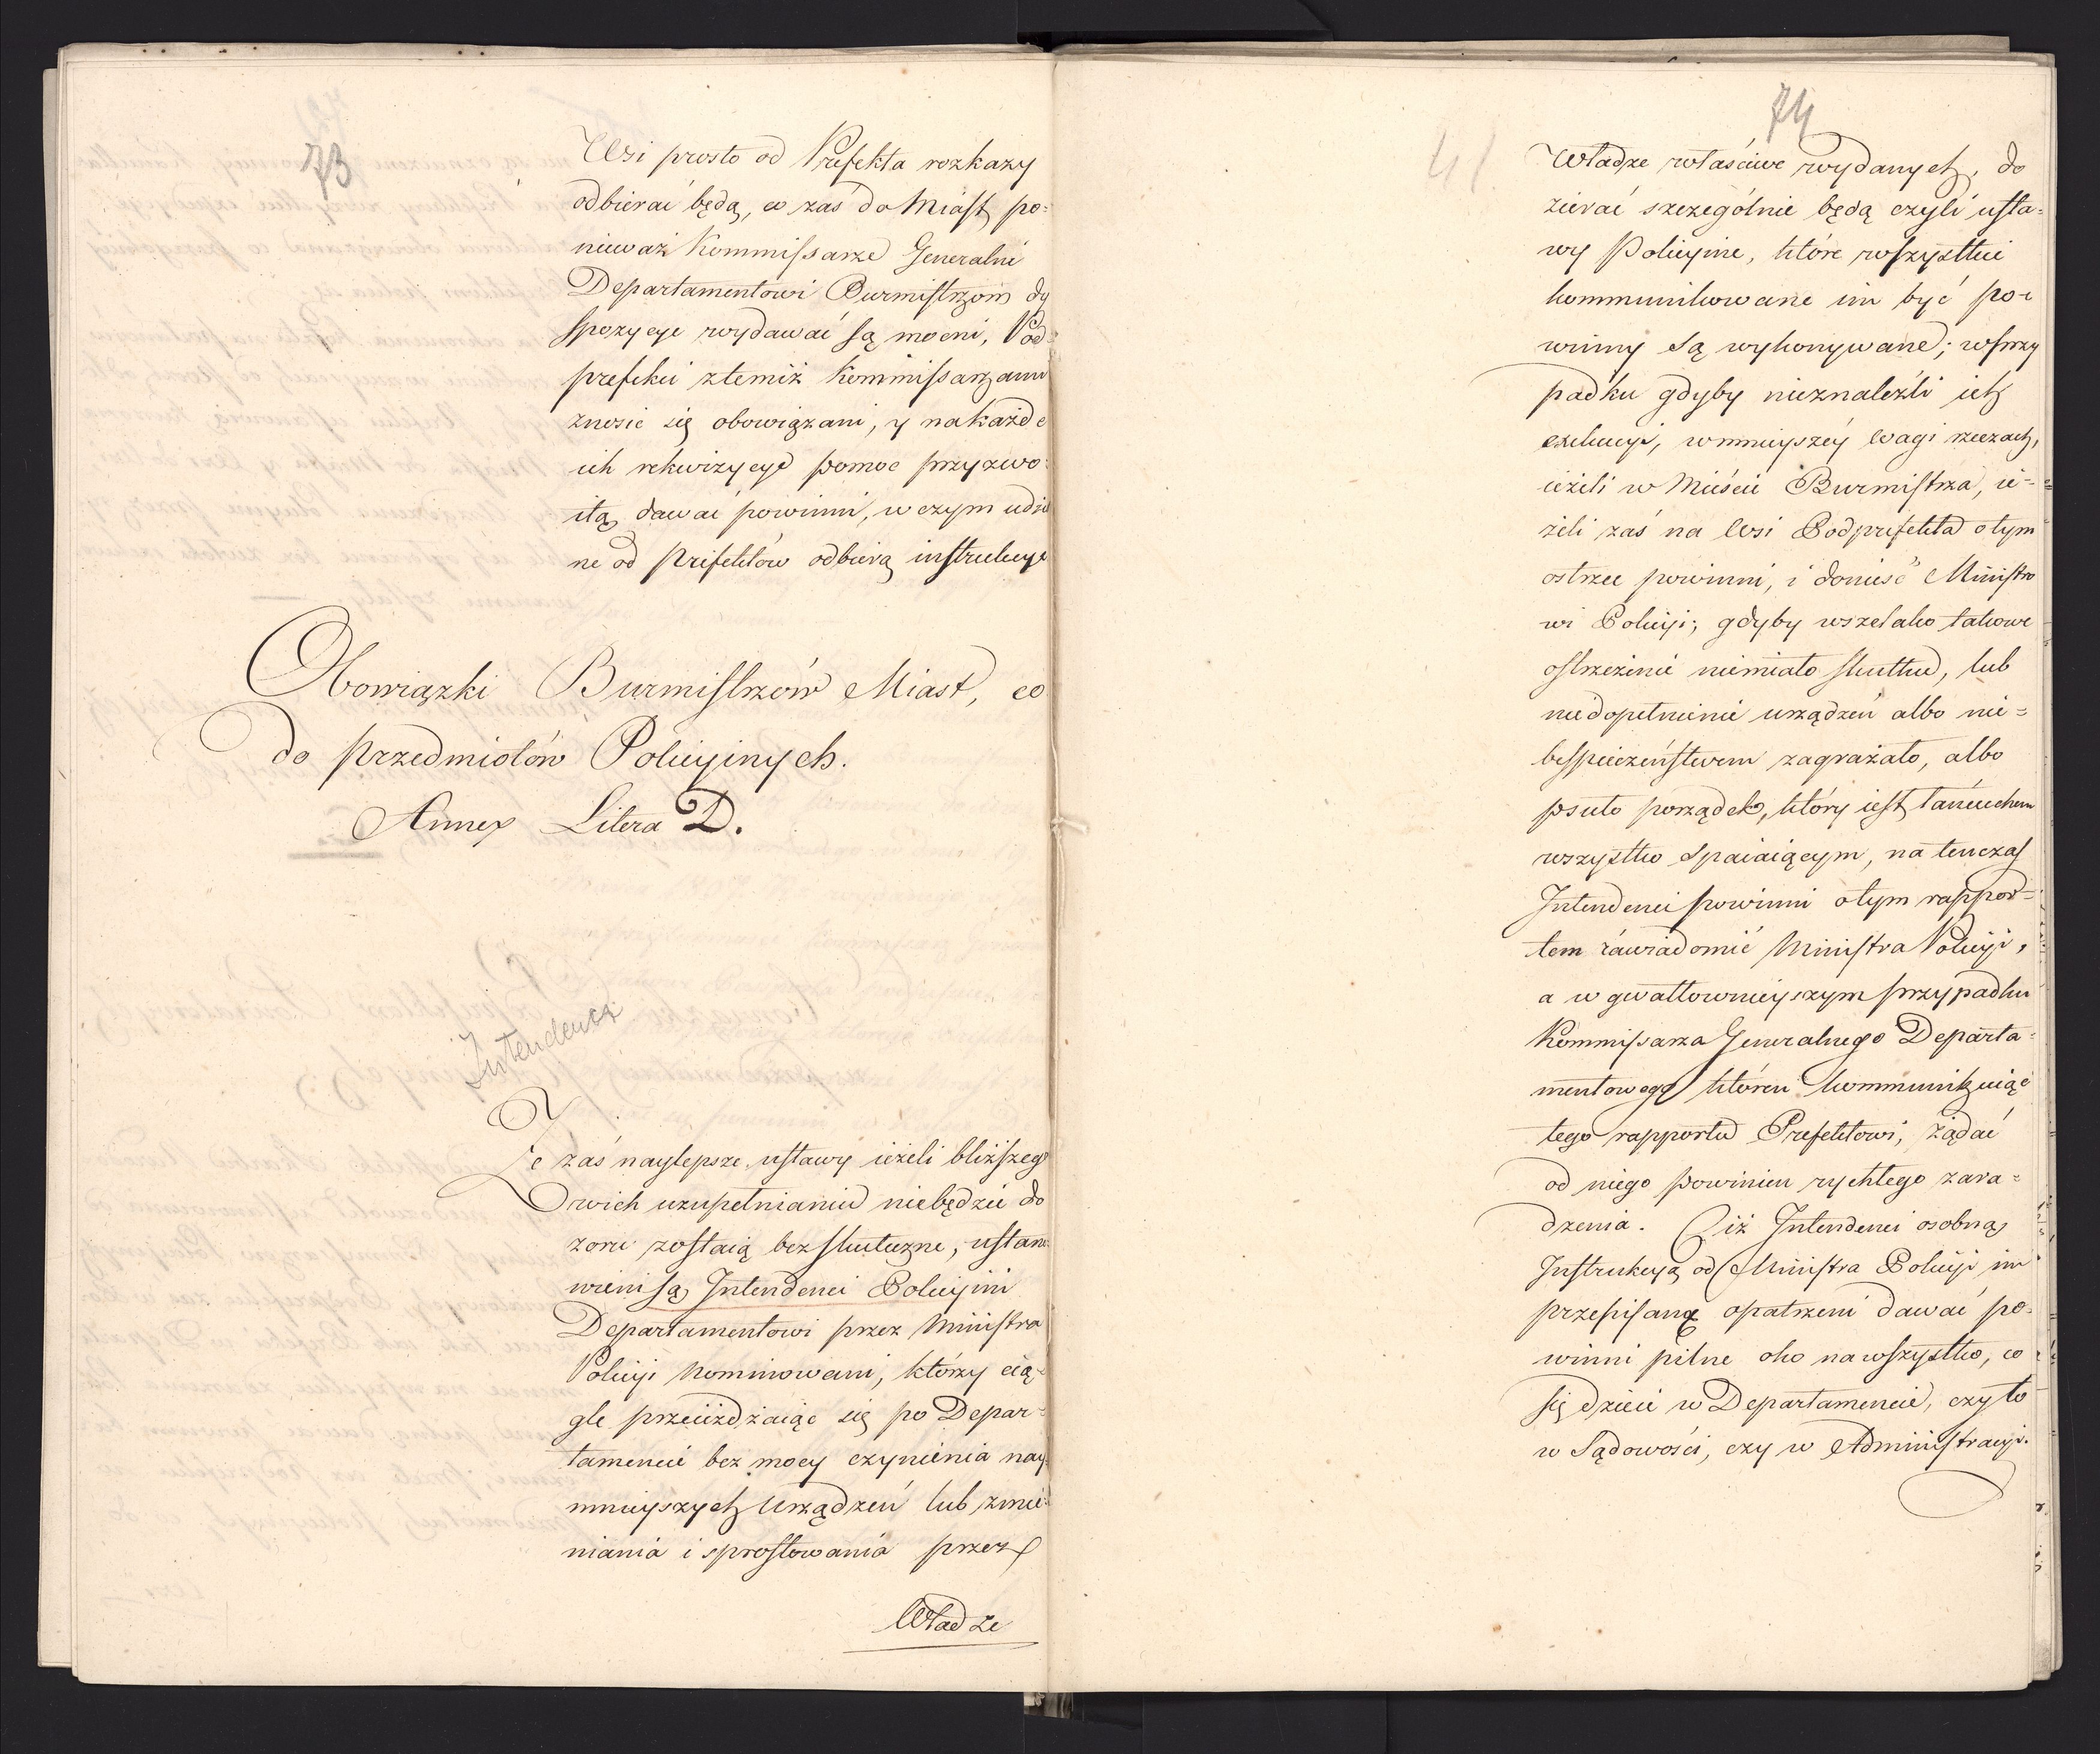 73
Wsi prosto od Prefekta rozkazy
odbierać będą, co zaś do Miast po=
nieważ Kommissarze Generalni
Departamentowi Burmistrzom dy
spozycye wydawać są mocni, Pod=
prefekci ztemiż Kommissarzami
znosić się obowiązani, y nakażde
ich rekwizycye pomoc przyzwo=
itą dawać powinni, w czym udziel
ne od Prefektów odbiorą instrukcye
Obowiązki Burmistrzów Miast, co
do przedmiotów Policyinych.
Annex Litera D.
Intendenci
Że zaś naylepsze ustawy ieżeli bliższego
wich uzupełnianiu niebędzie do
zoru zostaią bezskuteczne, ustano
wieni są Intendenci Policyini
Departamentowi przez Ministra
Policyi Nominowani, którzy cią=
gle przeiżdżaiąc się po Depar=
tamencie bez mocy czynienia nay=
mnieyszych Urządzeń lub zmie=
niania i sprostowania przez
Władze
74
41.
Władze właściwe wydanych, do
zierać szczególnie będą czyli usta=
wy Policyine, które wszystkie
kommunikowane im być po=
winny są wykonywane; wprzy
padku gdyby nieznaleźli ich
exekucyi, wmnieyszéy wagi rzeczach,
ieżeli w Mieście Burmistrza, ie=
żeli zaś na Wsi Podprefekta otym
ostrzec powinni, i donieść Ministro
wi Policyi; gdyby wszelako takowe
ostrzeżenie niemiało skutku, lub
niedopełnienie urządzeń albo nie=
bespieczeństwem zagrażało, albo
psuło porządek, który iest łańcuchem
wszystko spaiaiącym, na tenczas
Intendenci powinni otym rappor=
tem zawiadomić Ministra Policyi,
a w gwałtownieyszym przypadku
Kommissarza Generalnego Departa=
mentowego któren kommunikuiąc
tego rapportu Prefektowi, żądać
od niego powinien rychłego zara=
dzenia. Ciż Intendenci osobną
Instrukcyą od Ministra Policyi im
przepisaną opatrzeni dawać po=
winni pilne oko nawszystko, co
się dzieie w Departamencie, czy to
w Sądowości, czy w Administracyi.